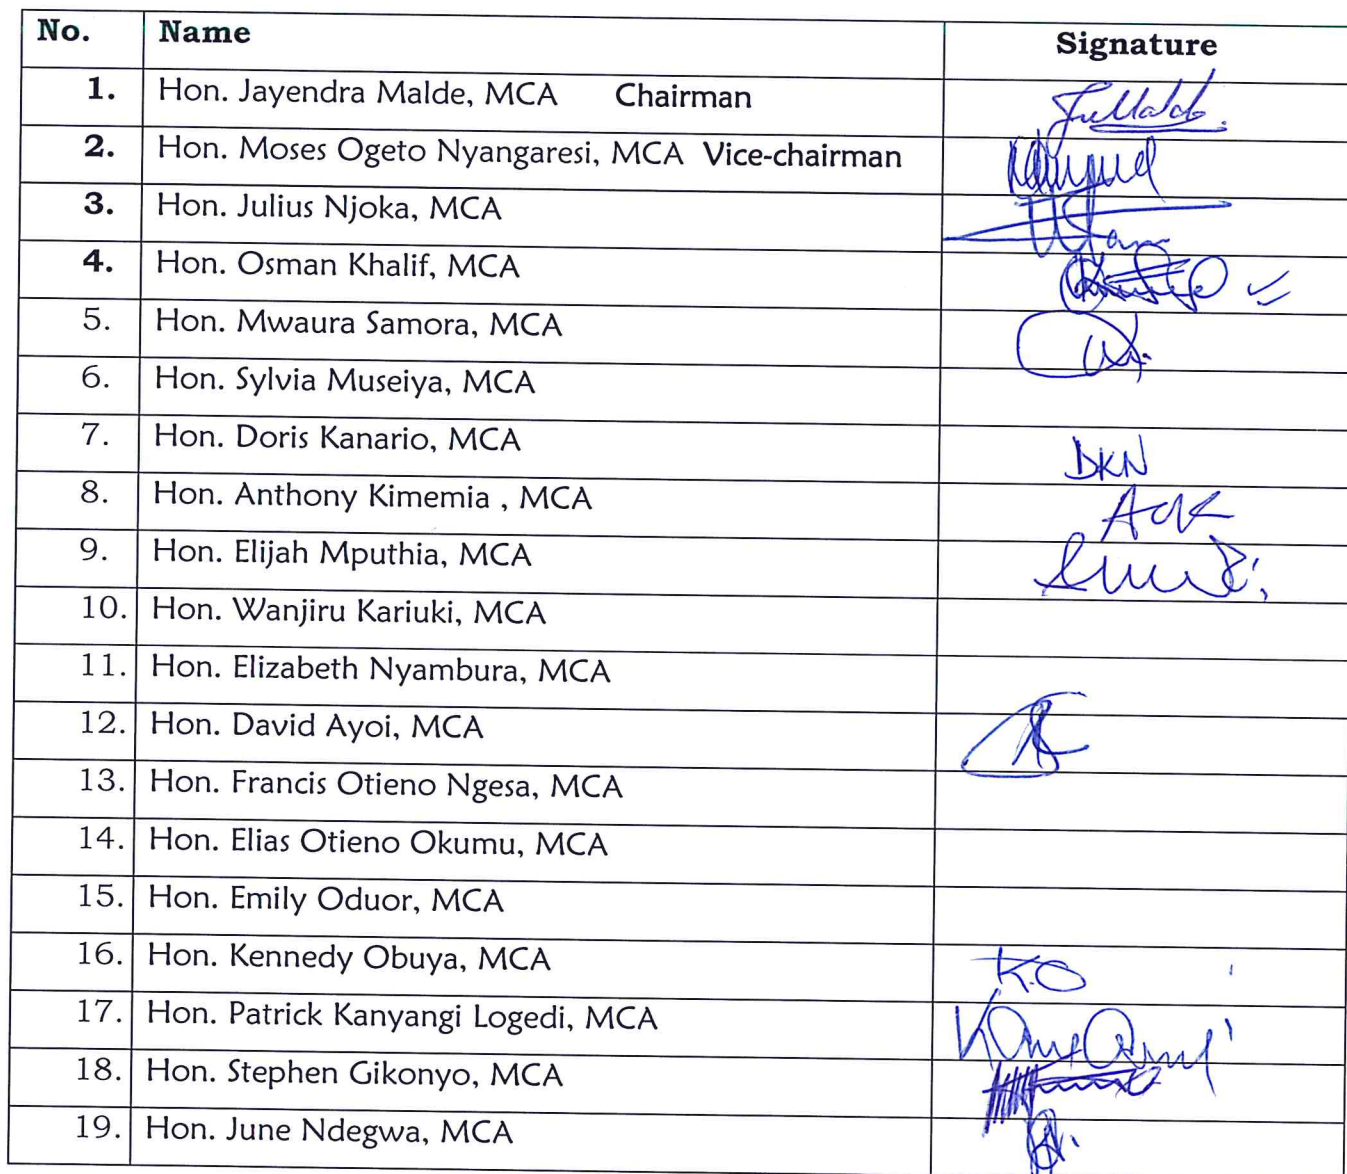 No. Name Signature
1. Hon. Jayendra Malde, MCA Chairman
2. Hon. Moses Ogeto Nyangaresi, MCA Vice-chairman
3. Hon. Julius Njoka, MCA
4. Hon. Osman Khalif, MCA
5. Hon. Mwaura Samora, MCA
6. Hon. Sylvia Museiya, MCA
7. Hon. Doris Kanario, MCA DKN
8. Hon. Anthony Kimemia , MCA
9. Hon. Elijah Mputhia, MCA
10. Hon. Wanjiru Kariuki, MCA
11. Hon. Elizabeth Nyambura, MCA
12. Hon. David Ayoi, MCA
13. Hon. Francis Otieno Ngesa, MCA
14. Hon. Elias Otieno Okumu, MCA
15. Hon. Emily Oduor, MCA
16. Hon. Kennedy Obuya, MCA K.O
17. Hon. Patrick Kanyangi Logedi, MCA
18. Hon. Stephen Gikonyo, MCA
19. Hon. June Ndegwa, MCA